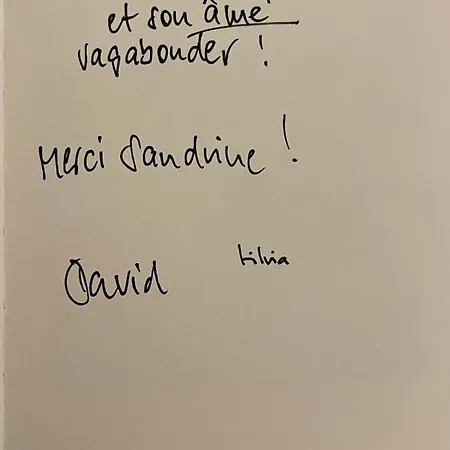 et son âme
vagabonder !
Merci Sandrine !
David